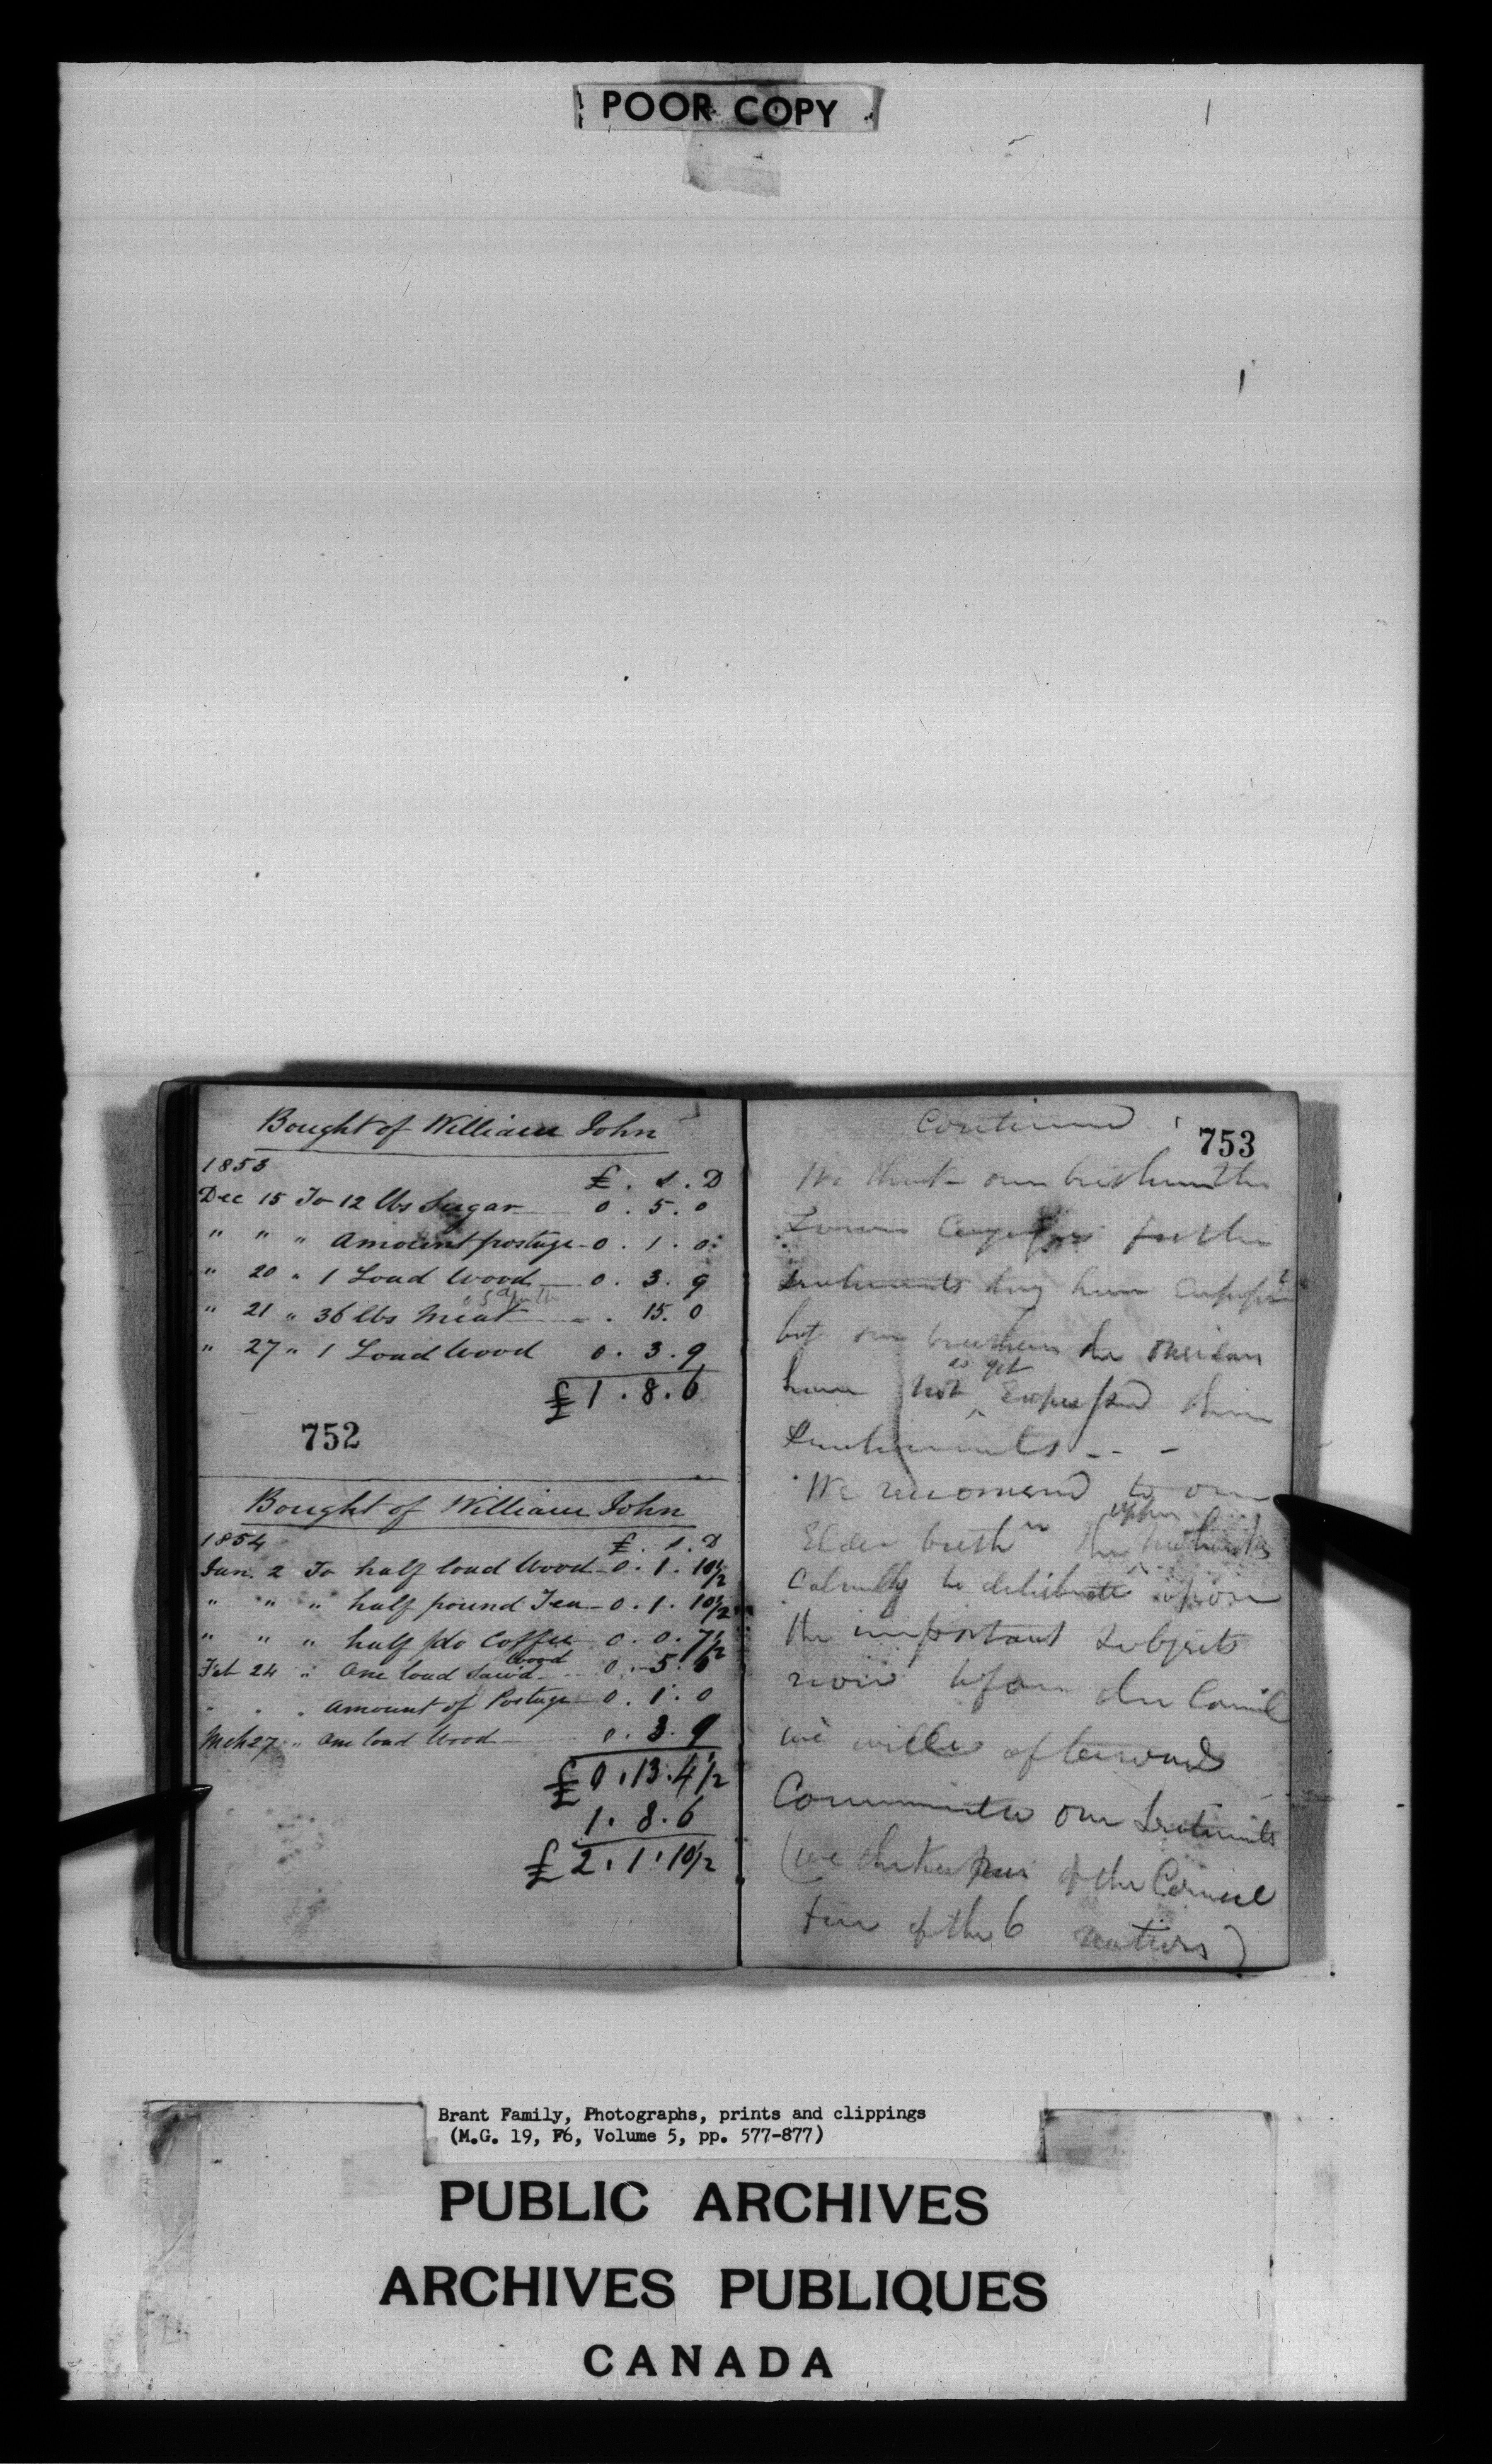 POOR COPY
Bought of William John
1853
£ . s . D
Dec 15 To 12 lbs Sugar 0 . 5 . 0
" " " Amount postage 0 . 1 . 0
" 20 " 1 Load Wood 0 . 3 . 9
" 21 " 36 lbs Meat . 15 . 0
" 27 " 1 Load Wood 0 . 3 . 9
£ 1 . 8 . 6
752
Bought of William John
1854
£ . s . D
Jan. 2 To half load Wood 0 . 1 . 10 1/2
" " " half pound Tea 0 . 1 . 10 1/2
" " " half do Coffee 0 . 0 . 7 1/2
wood
Feb 24 " One load Sawd 0 . 5 .
" " " Amount of Postage 0 . 1 . 0
Mch 27 " One load Wood 0 . 3 . 9
£ 0 . 13 . 4 1/2
1 . 8 . 6
£ 2 . 1 . 10 1/2
Continued
753
We our the
Lower for their
Sentiments they have
but our the
as yet
have not Expressed their
Sentiments - - -
We recomend to our
upper
Elder breth the
Calmly to deliberate upon
the important Subjects
now before the Council
we will afterwards
our Sentiments
(we of the Council
fire of the 6 nations)
Brant Family, Photographs, prints and clippings
(M.G. 19, F6, Volume 5, pp. 577-877)
PUBLIC ARCHIVES
ARCHIVES PUBLIQUES
CANADA